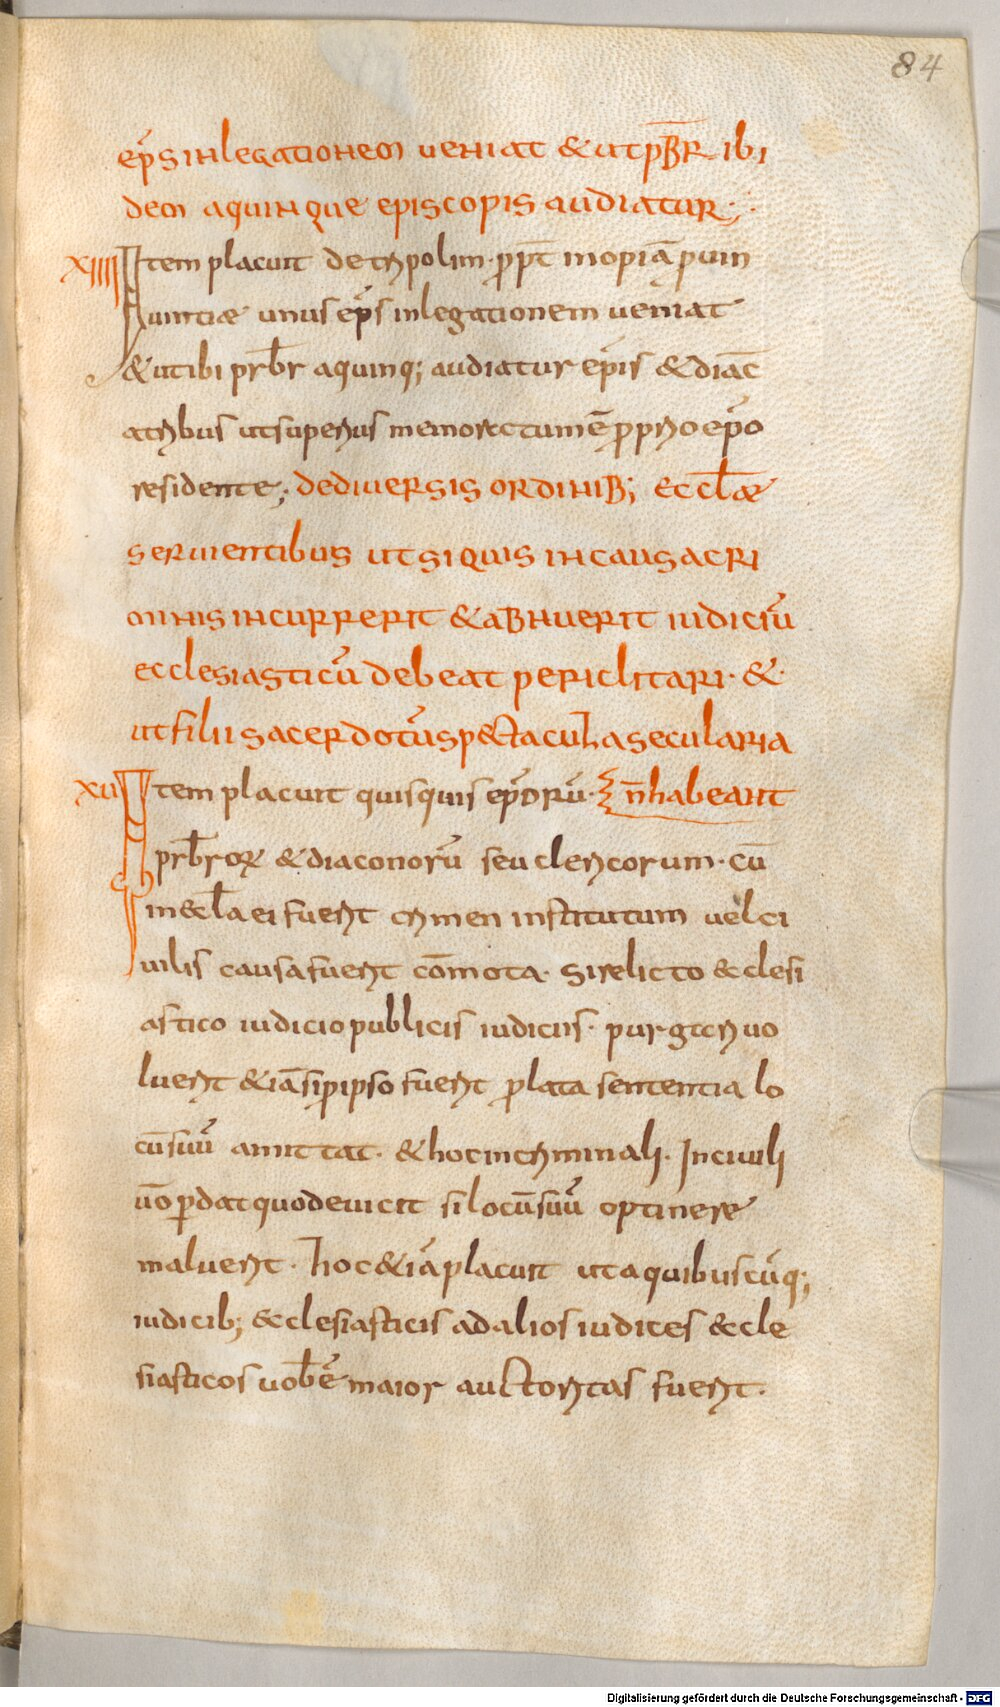 84
ep̅s in legationem ueniat & ut pr̅br ibi
dem a quinque episcopis audiatur;
XIIII Item placuit de tripolim· propt̅ inopia̅ prouin
uintiae unus ep̅s in legationem ueniat
& ut ibi prb̅r a quinq; audiatur ep̅is & diac̅
a tribus ut superius memoratum e̅ proprio ep̅o
residente; de diuersis ordinib; eccl̅ae
seruientibus ut si quis in causa cri
minis incurrerit & abnuerit iudiciu̅
ecclesiasticu̅ debeat periclitari· &
ut filii sacerdotu̅ spectacula secularia
XU Item placuit quisquis ep̅oru̅· n̅ habeant
prb̅roru̅ & diaconoru̅ seu clericorum· cu̅
in eccl̅a ei fuerit crimen institutum uel ci
uilis causa fuerit co̅mota· si relicto ecclesi
astico iudicio publicis iudiciis· purgari uo
luerit & ia̅ si pro ipso fuerit prolata sententia lo
cu̅ suu̅ amittat· & hoc in criminali· In ciuili
uo̅ perdat quod euicit si locu̅ suu̅ optinere
maluerit· hoc & ia̅ placuit ut a quibuscu̅q;
iudicib; ecclesiasticis ad alios iudices eccle
siasticos uob̅ e̅ maior auctoritas fuerit·
Digitalisierung gefördert durch die Deutsche Forschungsgemeinschaft - DFG